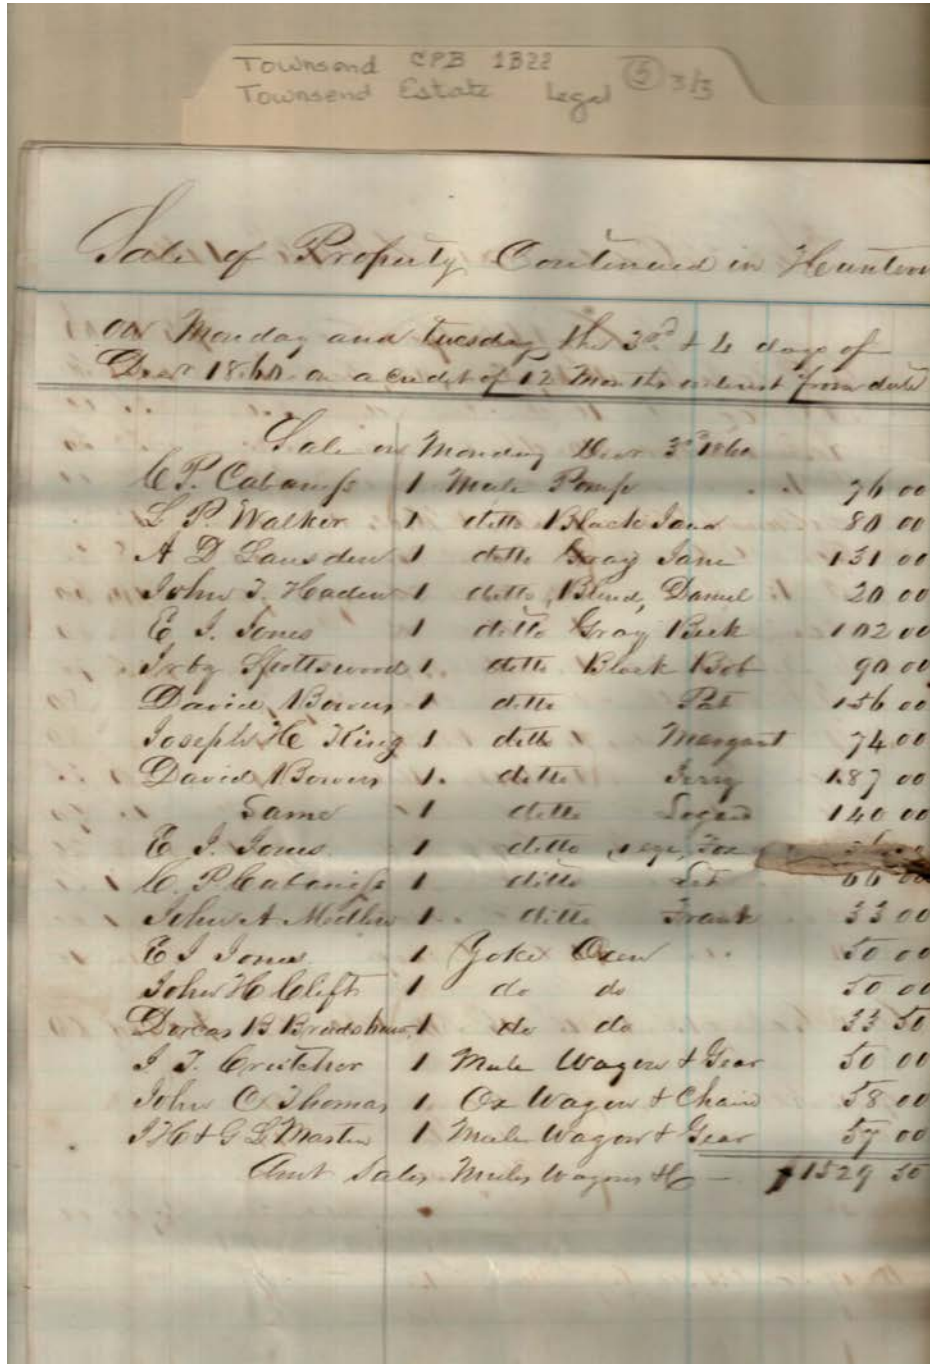 Townsend CPB 1822
Townsend Estate Legal (5) 3/3
Sale of Property Continued in
on Monday and tuesday the 3rd & 4 days of
Decr 1860 on a credit of 12 Months interest from date
Sale on Monday Decr 3rd 1860
C P. Cabaniss 1 Mule Pomp 76 00
L P. Walker 1 ditto Black Jane 80 00
A D Lausden 1 ditto Gray Jane 131 00
John T. Haden 1 ditto Blind, Daniel 20 00
E. J. Jones 1 ditto Gray Beck 102 00
Irby Spottswood 1. ditto Black Bob 90 00
David Bowers 1 ditto Pat 156 00
Joseph H King 1 ditto Margaret 74 00
David Bowers 1. ditto Jerry 187 00
Same 1 ditto Logan 140 00
E J. Jones. 1 ditto Fox
C. P Cabaniss 1 ditto 66 00
John A 1. ditto Frank 33 00
E J Jones. 1 Yoke Oxen 50 00
John H Clift 1 do do 50 00
Dorcas B Bradshaw 1 do do 33 50
J T. Crutcher 1 Mule Wagon & Gear 50 00
John C Thomas 1. Ox Wagon & Chain 58 00
J H & G L Mastin 1 Mule Wagon & Gear 57 00
Amt Sales Mules Wagons &c — $1529 50